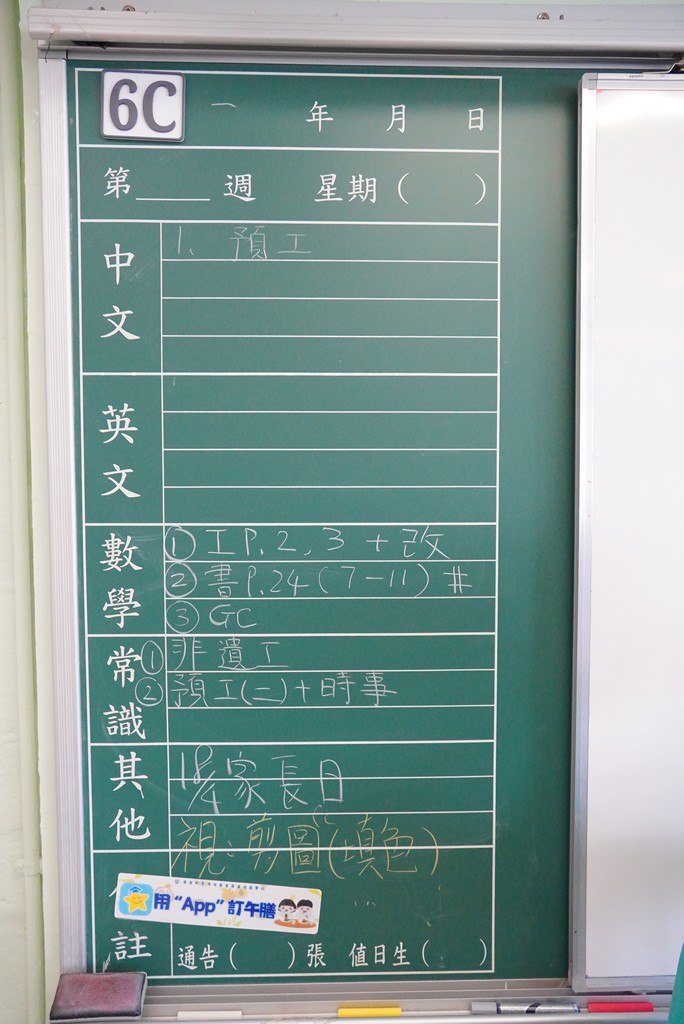 6C 年 月 日
第____週 星期( )
中文
1. 預工
英文
數學
① 工P.2,3+改
② 書P.24(7-11)#
③ GC
常識
① 非遺工
② 預工(二)+時事
其他
18/4家長日
視:剪圖(填色)
註
用“App”訂午膳
通告( )張 值日生( )